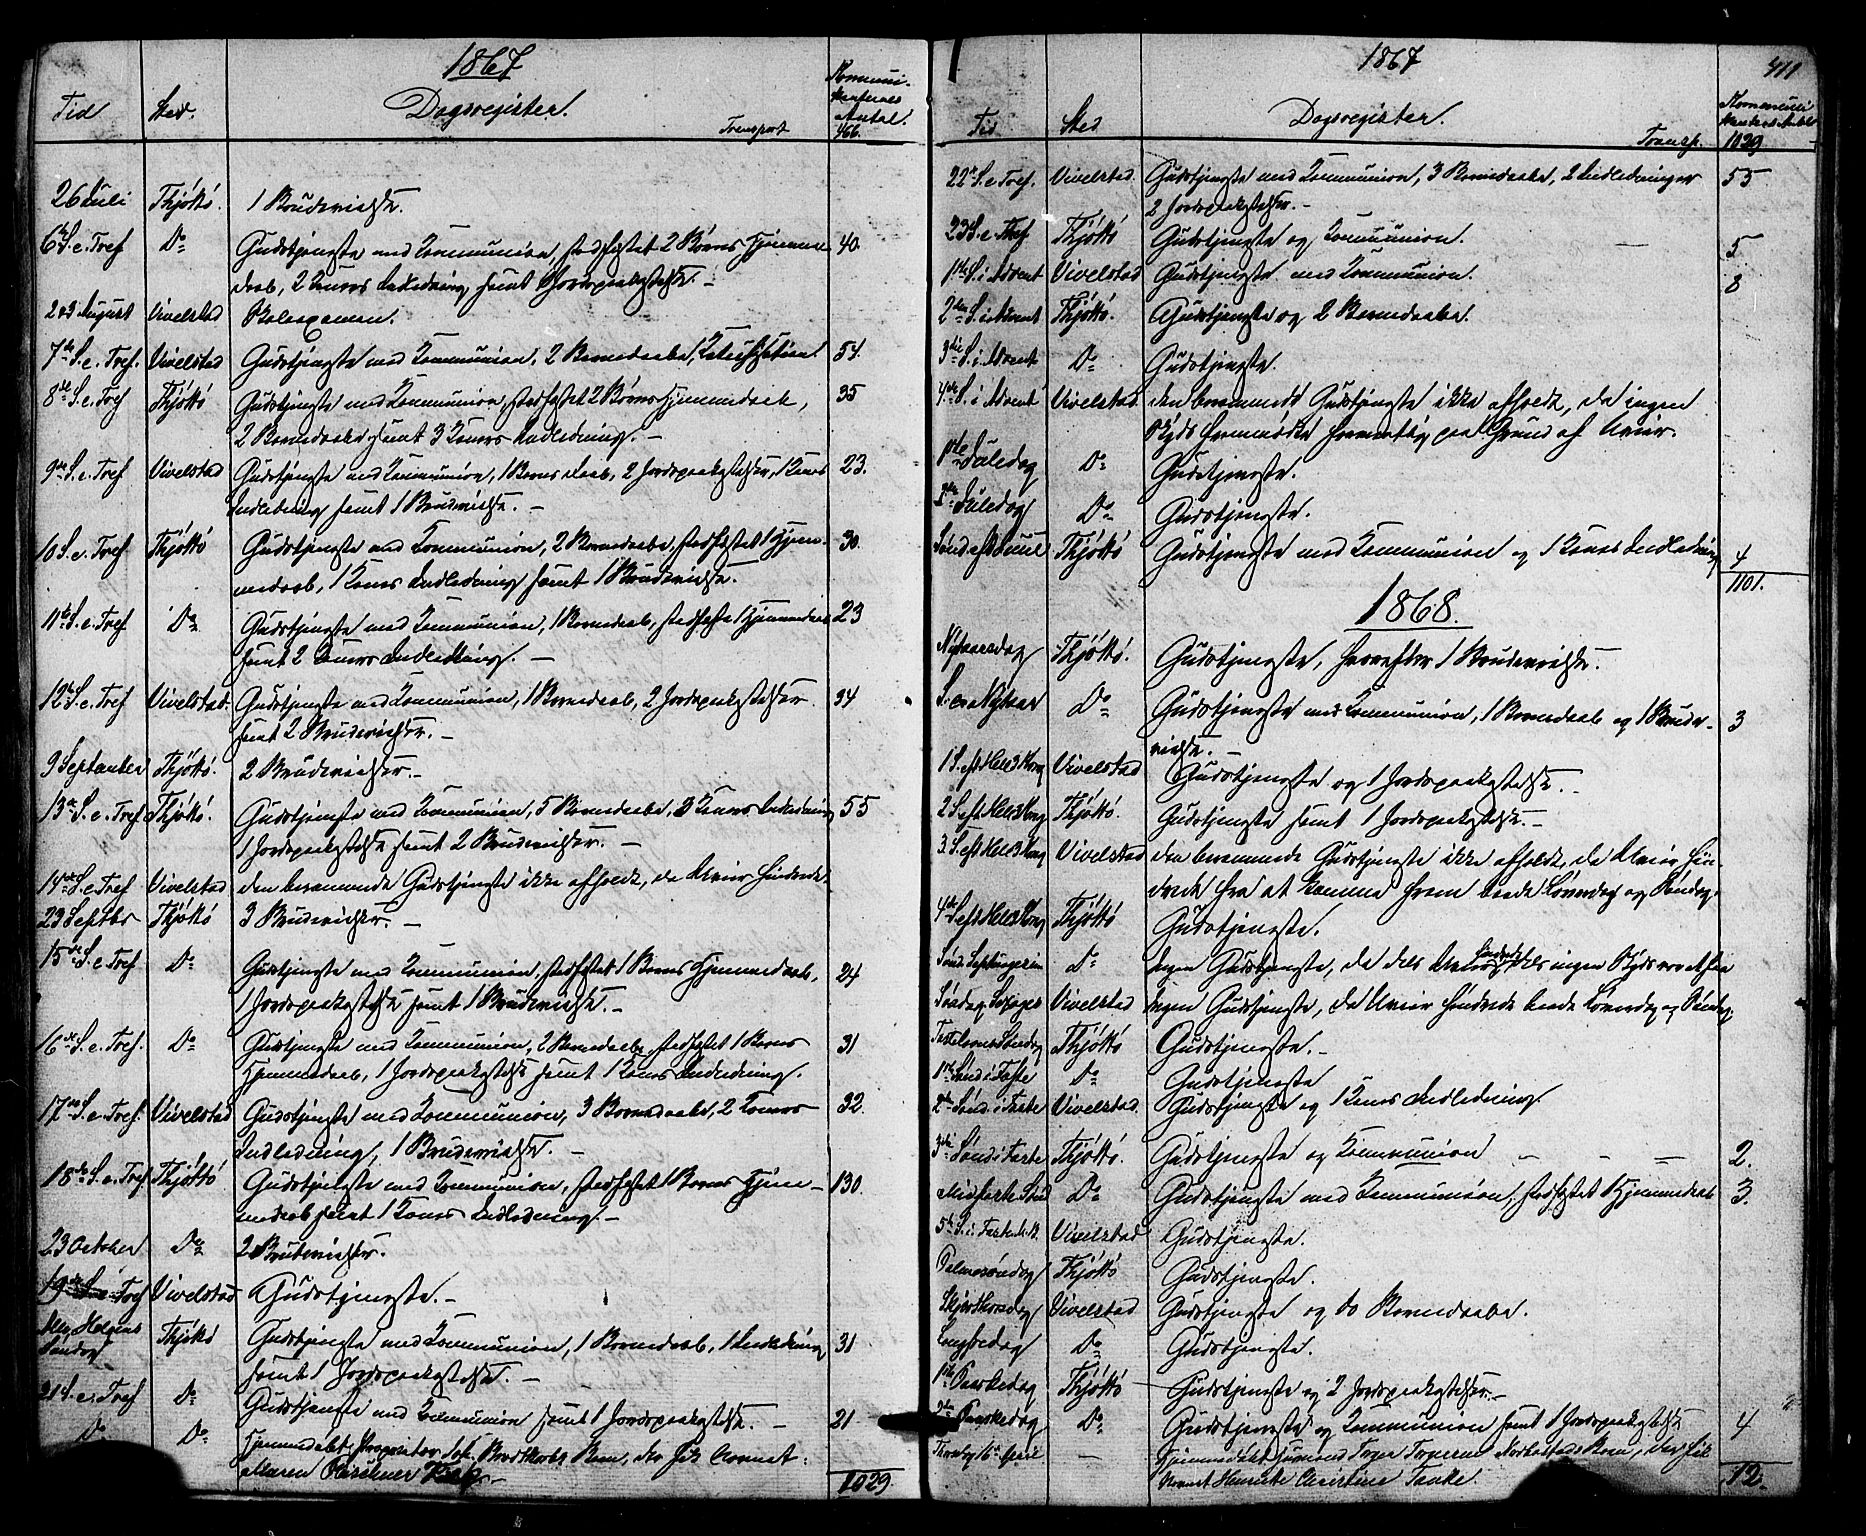 1867
Tid Sted. Dagsregister. Transport Kommuni-
kanternes
Antal.
466.
26 Juli Thjøttø. 1 Brudevielse.
6te S. e. Tref Do Gudstjeneste med Communion, stadfæstet 2 Børns Hjemme 40.
daab, 2 Koners Indledning samt Jordpaakastelse. -
2 & 3 August Vivelstad Skoleexamen.
7de S. e. Tref. Vivelstad Gudstjeneste med Communion, 2 Barnedaabe, Katechisation. 54.
8de S. e. Tref Thjøttø Gudstjeneste med Communion, stadfæstet 2 Børns Hjemmedaab, 35
2 Barnedaabe samt 3 Koners Indledning. -
9de S. e. Tref Vivelstad Gudstjeneste med Communion, 1 Barns Daab, 2 Jordpaakastelser, 1 Kones 23.
Indledning samt 1 Brudevielse. -
10 S. e. Tref Thjøttø Gudstjeneste med Communion, 2 Barnedaabe, stadfæstet 1 Hjem- 30.
medaab, 1 Kones Indledning samt 1 Brudevielse.
11te S. e. Tref Do Gudstjeneste med Communion, 1 Barnedaab, stadfæstet 1 Hjemmedaab 23
samt 2 Koners Indledning. -
12te S. e. Tref Vivelstad. Gudstjeneste med Communion, 1 Barnedaab, 2 Jordpaakastelser 34
samt 2 Brudevielser. -
9 September Thjøttø. 2 Brudevielser. -
13de S. e. Tref Thjøttø. Gudstjeneste med Communion, 5 Barnedaabe, 3 Koners Indledning 55
1 Jordpaakastelse samt 2 Brudevielser. -
14de S. e. Tref Vivelstad den berammede Gudstjeneste ikke afholdt, da Uveir hindrede.
23 Septbr Thjøttø 3 Brudevielser. -
15de S. e. Tref Do Gudstjeneste med Communion, stadfæstet 1 Barns Hjemmedaab, 24
1 Jordpaakastelse samt 1 Brudevielse. -
16de S. e. Tref. Do Gudstjeneste med Communion, 2 Barnedaabe, stadfæstet 1 Barns 31
Hjemmedaab, 1 Jordpaakastelse samt 1 Kones Indledning.
17de S. e. Tref. Vivelstad Gudstjeneste med Communion, 3 Barnedaabe, 2 Koners 32.
Indledning, 1 Brudevielse. -
18de S. e. Tref Thjøttø Gudstjeneste med Communion, stadfæstet 1 Barns Hjem- 130.
medaab samt 1 Kones Indledning. -
23 October Do 2 Brudevielser.
19de S. e. Tref Vivelstad Gudstjeneste. -
Alle Helgens
Søndag Thjøttø Gudstjeneste med Communion, 1 Barnedaab, 1 Indledning 31
samt 1 Jordpaakastelse. -
21 S. e. Tref Do Gudstjeneste med Communion samt 1 Jordpaakastelse. - 21
Do Do Hjemmedøbt Proprietør Joh. Brodtkorbs Barn, der fik Navnet:
1029
1867 411
Tid Sted Dagsregister. Transp. Kommuni
kanternes Antal
1029
22de S. e. Tref. Vivelstad Gudstjeneste med Communion, 3 Barnedaabe, 2 Indledninger 55
2 Jordpaakastelser. -
23 S. e. Tref Thjøttø Gudstjeneste og Communion. - 5
1ste S. i Advent Vivelstad Gudstjeneste med Communion. 8
2den S. i Advent Thjøttø. Gudstjeneste og 2 Barnedaabe.
3die S. i Advent Do Gudstjeneste.
4de S. i Advent Vivelstad den berammede Gudstjeneste ikke afholdt, da ingen
Skyds fremmødte formentlig paa Grund af Uveir.
1ste Juledag Do Gudstjeneste.
2den Juledag Do Gudstjeneste.
Sønd eft Juul Thjøttø Gudstjeneste med Communion og 1 Kones Indledning 4
1101.
1868.
Nytaarsdag Thjøttø. Gudstjeneste, herefter 1 Brudevielse. -
S. e. Nytaar Do Gudstjeneste med Communion, 1 Barnedaab og 1 Brude- 3
vielse. -
1 S. eft Hell 3 Kong Vivelstad Gudstjeneste og 1 Jordpaakastelse. -
2 S. eft Hell 3 Kong Thjøttø. Gudstjeneste samt 1 Jordpaakastelse. -
3. S. eft Hell 3 Kong Vivelstad den berammede Gudstjeneste ikke afholdt, da Uveir hin-
drede fra at komme frem baade Løverdag og Søndag.
4de S. eft Hell 3 Kong Thjøttø Gudstjeneste.
Sønd. Septuagesim Do Ingen Gudstjeneste, da dels Uveir hindrede dels ingen Skyds var at faa
Søndag Sexages Vivelstad Ingen Gudstjeneste, da Uveir hindrede baade Løverdag og Søndag.
Fastelavns Søndag Thjøttø Gudstjeneste. -
1ste Sønd i Faste Do Gudstjeneste
2den Sønd. i Faste Vivelstad. Gudstjeneste og 1 Kones Indledning
3die Sønd i Faste Thjøttø. Gudstjeneste og Communion - - - 2.
Midfaste Sønd Do Gudstjeneste med Communion, stadfæstet 1 Hjemmedaab 3.
5te S. i Faste Vivelstad Gudstjeneste.
Palmesøndag Thjøttø Gudstjeneste.
Skjærthorsdag Vivelstad Gudstjeneste og to Barnedaabe.
Langfredag Do Gudstjeneste.
1ste Paaskedag Thjøttø Gudstjeneste og 2 Jordpaakastelser. -
2den Paaskedag Do Gudstjeneste og Communion samt 1 Jordpaakastelse 4
Torsdag 16 April - Hjemmedøbt Barn, der fik
Navnet Henrikke Christine Tanke. 12.